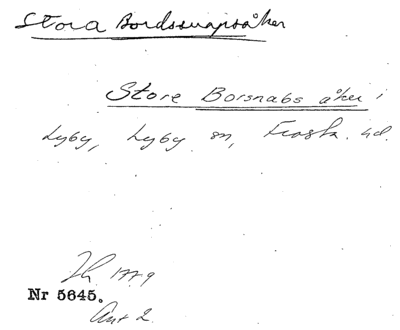 Stora Bordssnapsåker
Store Borsnabs åker i
Lyby, Lyby sn, Frosta hd.
1779
Nr 5645.
Ant 2.